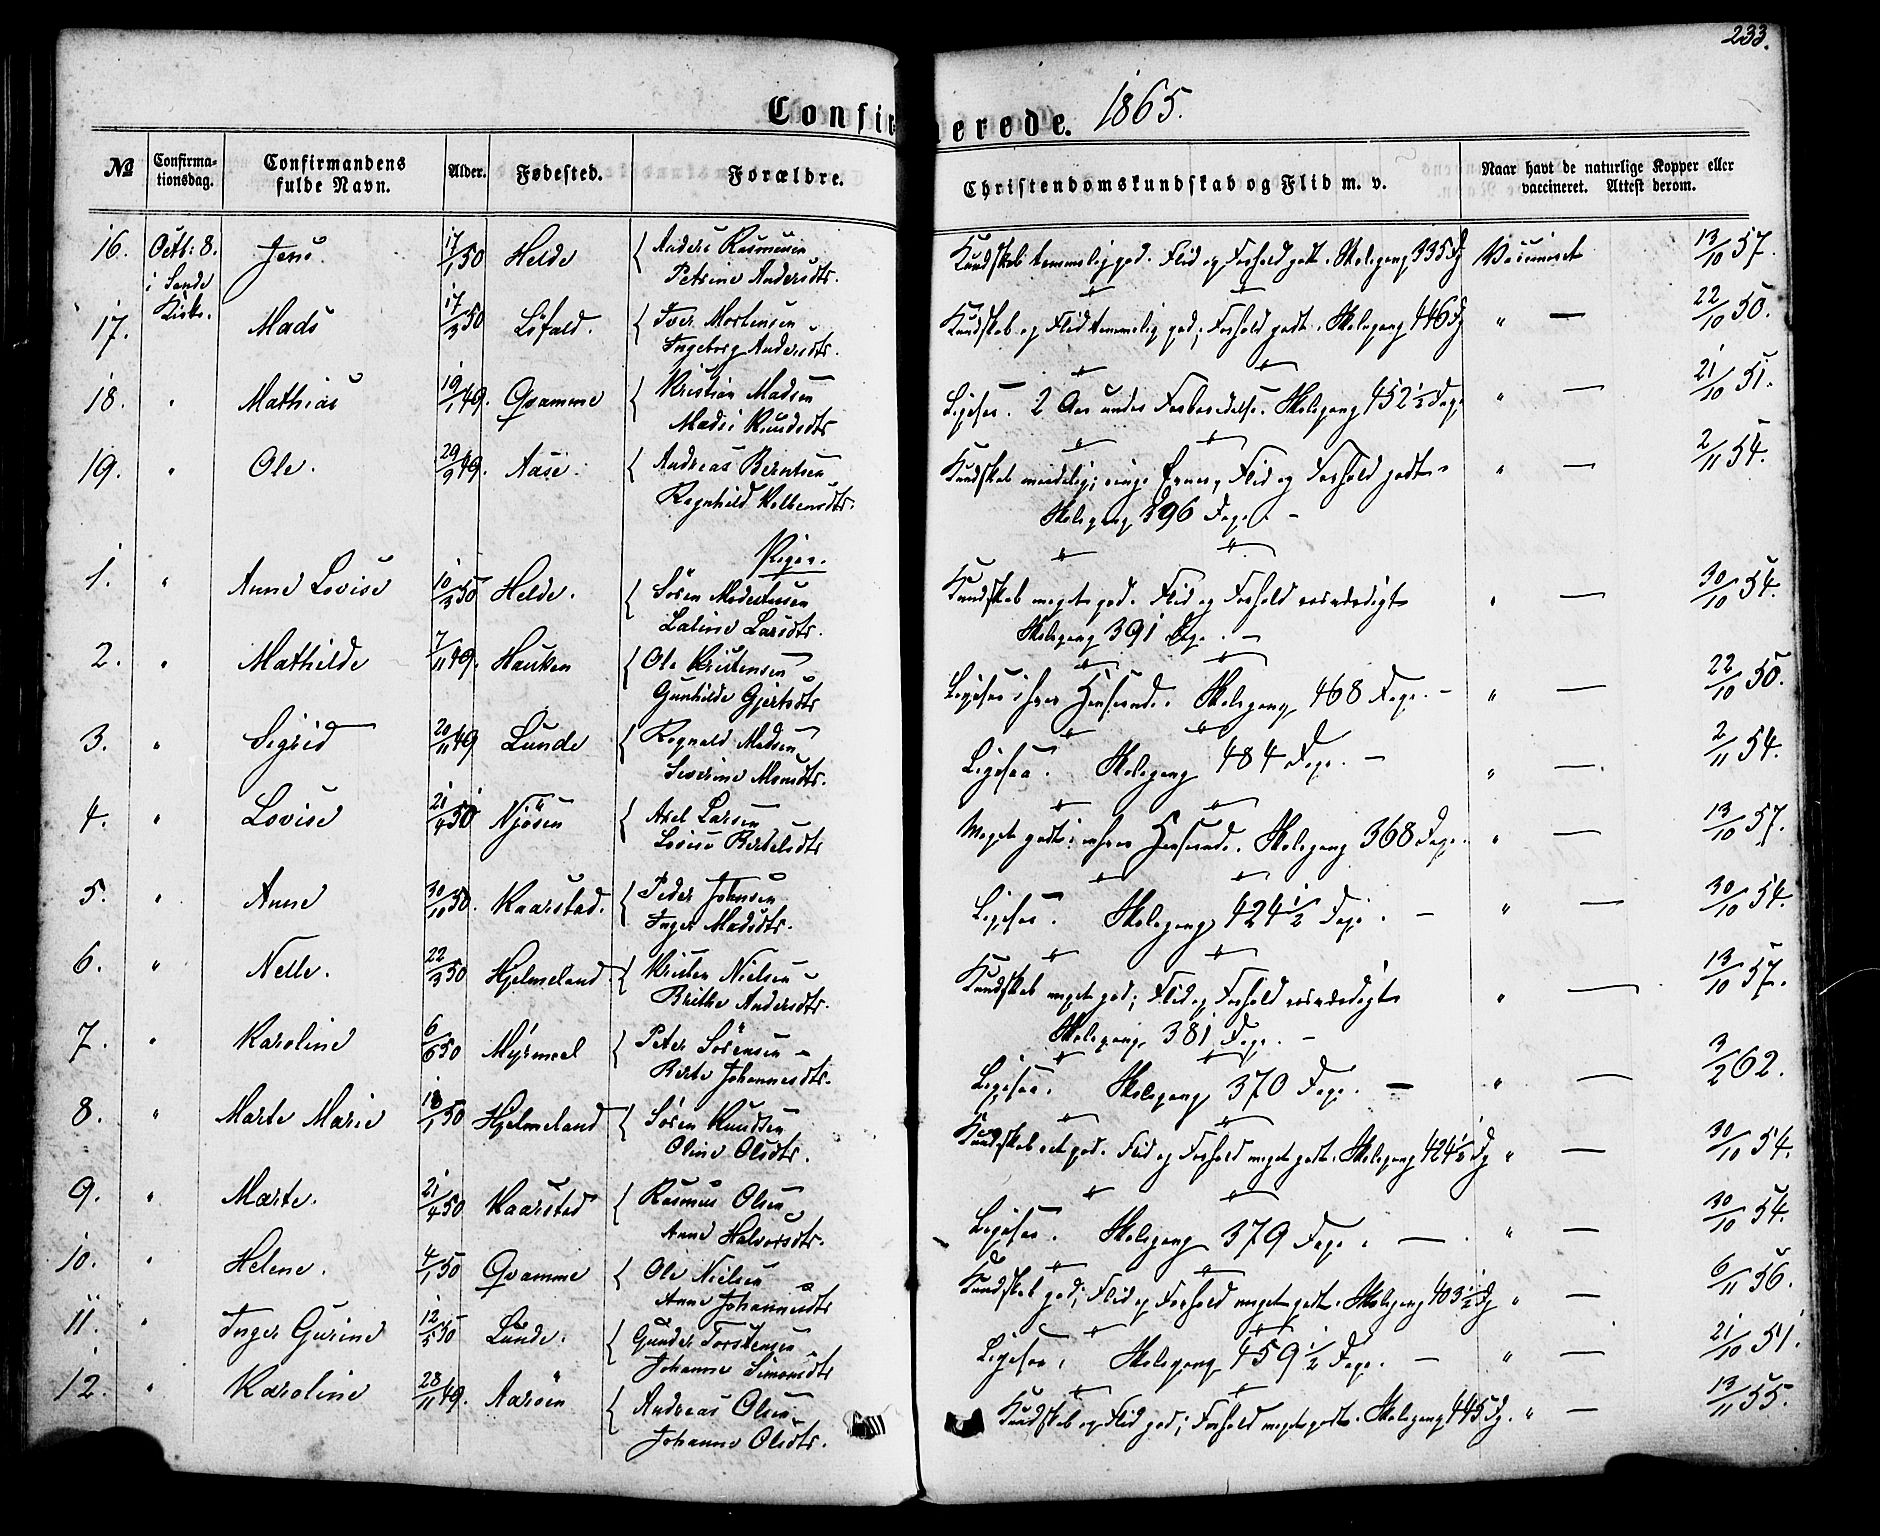 233.
Confirmerede. 1865.
№ Confirma-tionsdag. Confirmandens fulde Navn. Alder. Fødested. Forældre. Christendomskundskab og Flid m. v. Naar havt de naturlige Kopper eller vaccineret. Attest derom.
16. Octb: 8. i Sande Kirke. Jens 17/1 50 Helde { Anders Rasmussen
Petrine Andersdtr. Kundskab temmelig god. Flid og Forhold godt. Skolegang 335 Dg Vaccineret 13/10 57.
17. Mads 17/3 50 Löfald. { Iver Mortensen
Ingeborg Andersdtr. Kundskab og Flid temmelig god; Forhold godt. Skolegang 446 Dg " — 22/10 50.
18. " Mathias 19/1 49. Qvamme { Kristian Madsen
Madsi Knudsdtr Ligesaa. 2 Aar under Forberedelse. Skolegang 452 1/2 Dage " — 21/10 51.
19. " Ole. 29/9 49. Aase. { Andreas Berntsen
Ragnhild Kolbensdtr. Kundskab maadelig; ringe Evner, Flid og Forhold godt.
Skolegang 396 Dage. — " — 2/11 54.
Piger.
1. " Anne Lovise 10/3 50 Helde. { Sören Modestussen
Laline Larsdtr. Kundskab meget god. Flid og Forhold rosværdigt
Skolegang 391 Dage. — " — 30/10 54.
2. " Mathilde 7/11 49. Hauken { Ole Kristensen
Gunhilde Gjertsdtr Ligesaa i hver Henseende. Skolegang 468 Dage. — " — 22/10 50.
3. " Sigrid 20/11 49 Lunde { Rognald Madsen
Severine Monsdtr. Ligesaa. Skolegang 484 Dage. — " — 2/11 54.
4. " Lovise 21/4 50 Njösen { Axel Larsen
Lovise Bertelsdtr Meget godt i enhver Henseende. Skolegang 368 Dage. " — 13/10 57.
5. " Anne 30/10 50. Kaarstad. { Peder Johnsen
Inger Madsdtr. Ligesaa. Skolegang 424 1/2 Dage. — " — 30/10 54.
6. " Nelle. 22/3 50 Hjelmeland. { Kristen Nielsen
Brithe Andersdtr. Kundskab meget god; Flid og Forhold rosværdigt
Skolegang 381 Dage. — " — 13/10 57.
7. " Karoline 6/6 50 Myrmeel { Peter Sörensen
Berte Johannesdtr. Ligesaa. Skolegang 370 Dage. — " — 3/2 62.
8. " Marte Marie 18/1 50 Hjelmeland { Sören Knudsen
Oline Olsdtr. Kundskab ret god. Flid og Forhold meget godt. Skolegang 424 1/2 Dg " — 30/10 54.
9. " Marte. 21/4 50 Kaarstad { Rasmus Olsen
Anne Halvorsdtr. Ligesaa. Skolegang 379 Dage. — " — 30/10 54.
10. " Helene. 4/1 50 Qvamme { Ole Nielsen
Anne Johannesdtr Kundskab god; Flid og Forhold meget godt. Skolegang 403 1/2 Dg " — 6/11 56.
11. " Inger Gurine 12/5 50 Lunde. { Gunder Torstensen
Johanne Simonsdtr Ligesaa. Skolegang 459 1/2 Dage. — " — 21/10 51.
12. " Karoline 28/11 49. Aarsén { Andreas Olsen
Johanne Olsdtr. Kundskab og Flid god; Forhold meget godt. Skolegang 445 Dg. " — 13/11 55.